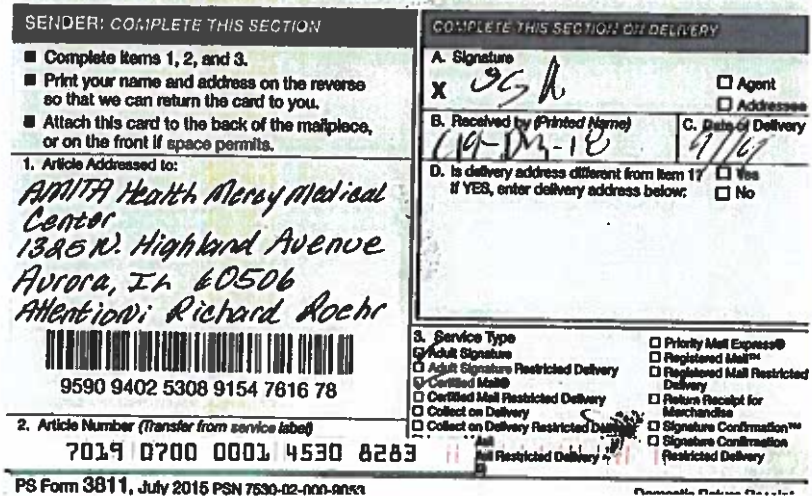 SENDER: COMPLETE THIS SECTION
■ Complete items 1, 2, and 3.
■ Print your name and address on the reverse
so that we can return the card to you.
■ Attach this card to the back of the mailpiece,
or on the front if space permits.
1. Article Addressed to:
AMITA Health Mercy Medical
Center
1325 N. Highland Avenue
Aurora, IL 60506
Attention: Richard Roehr
9590 9402 5308 9154 7616 78
2. Article Number (Transfer from service label)
7019 0700 0001 4530 8283
PS Form 3811, July 2015 PSN 7530-02-000-9053
COMPLETE THIS SECTION ON DELIVERY
A. Signature
X
☐ Agent
☐ Addressee
B. Received by (Printed Name)
C. Date of Delivery
D. Is delivery address different from item 1? ☐ Yes
If YES, enter delivery address below: ☐ No
3. Service Type
Adult Signature
☐ Adult Signature Restricted Delivery
Certified Mail®
☐ Certified Mail Restricted Delivery
☐ Collect on Delivery
☐ Collect on Delivery Restricted Delivery
Mail
Mail Restricted Delivery
☐ Priority Mail Express®
☐ Registered Mail™
☐ Registered Mail Restricted
Delivery
☐ Return Receipt for
Merchandise
☐ Signature Confirmation™
☐ Signature Confirmation
Restricted Delivery
Domestic Return Receipt